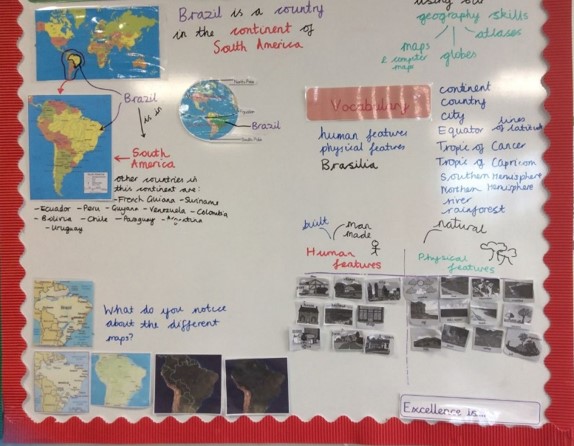 Brazil is a country
in the continent of
South America
using our
geography skills
maps
& computer
maps
globes
atlases
Brazil
is in
South
America
other countries in
this continent are:
- French Guiana - Suriname
- Ecuador - Peru - Guyana - Venezuela - Colombia
- Bolivia - Chile - Paraguay - Argentina
- Uruguay
North Pole
Equator
Brazil
South Pole
Vocabulary
human features
physical features
Brasilia
continent
country
city
Equator
lines
of latitude
Tropic of Cancer
Tropic of Capricorn
Southern Hemisphere
Northern Hemisphere
river
rainforest
built
man
made
Human
features
natural
Physical
features
What do you notice
about the different
maps?
Excellence is...